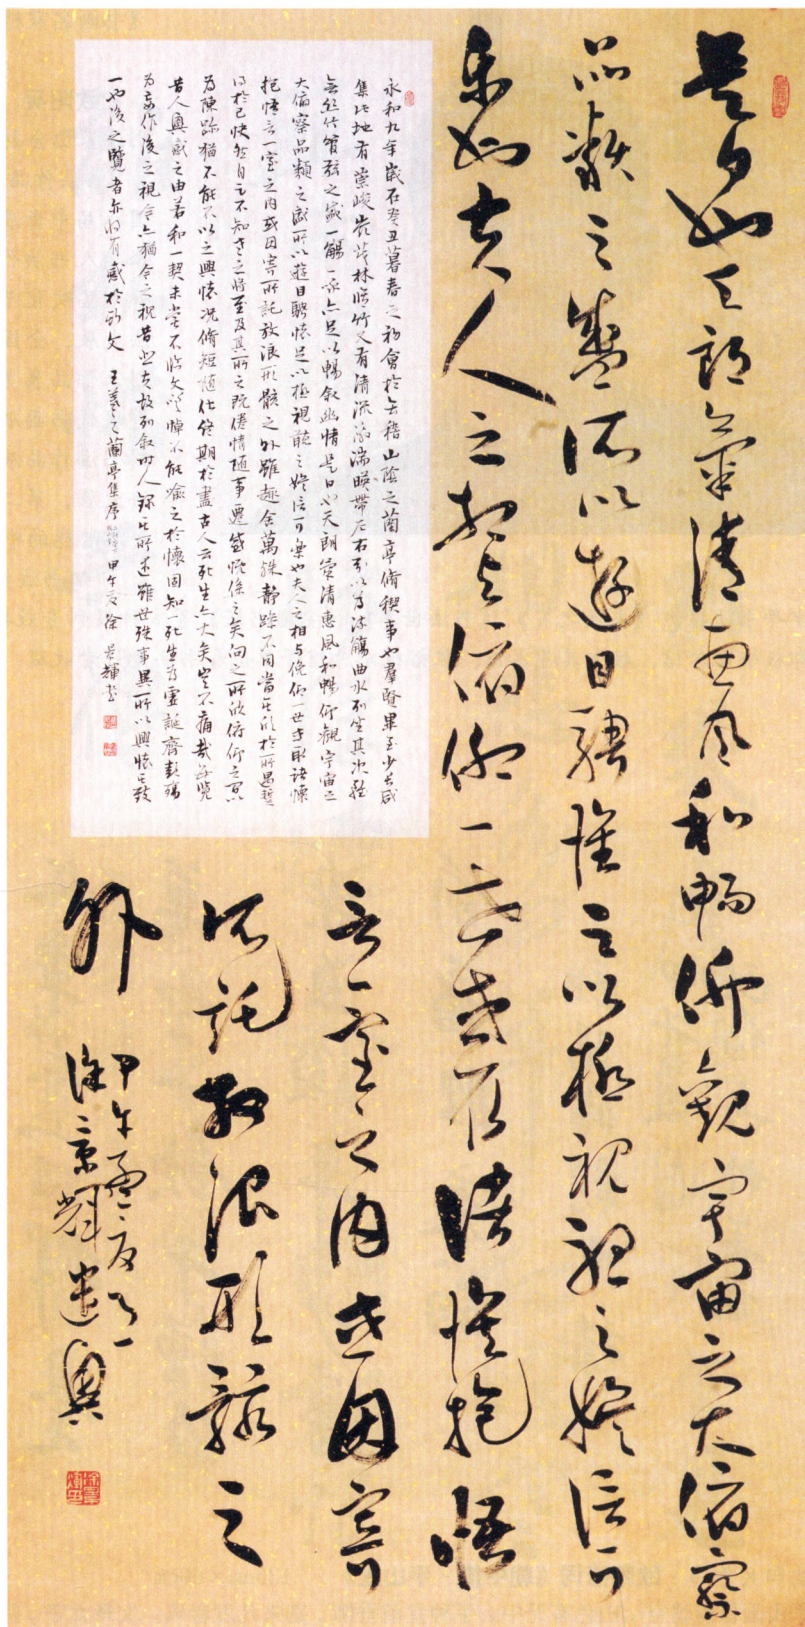 是日也天朗氣清惠風和暢仰觀宇宙之大俯察
品類之盛所以遊目騁懷足以極視聽之娛信可
樂也夫人之相與俯仰一世或取諸懷抱悟
言一室之内或因寄
所託放浪形骸之
外
甲午孟夏
徐景輝遣興
永和九年歲在癸丑暮春之初會於會稽山陰之蘭亭脩禊事也羣賢畢至少長咸
集此地有崇峻嶺茂林脩竹又有清流激湍暎帶左右引以為流觴曲水列坐其次雖
無絲竹管弦之盛一觴一詠亦足以暢叙幽情是日也天朗氣清惠風和暢仰觀宇宙之
大俯察品類之盛所以遊目騁懷足以極視聽之娛信可樂也夫人之相與俛仰一世或取諸懷
抱悟言一室之内或因寄所託放浪形骸之外雖趣舍萬殊静躁不同當其欣於所遇暫
得於己快然自足不知老之將至及其所之既倦情隨事遷感慨係之矣向之所欣俯仰之間以
為陳跡猶不能不以之興懷況脩短隨化終期於盡古人云死生亦大矣豈不痛哉每覽
昔人興感之由若和一契未嘗不臨文嗟悼不能喻之於懷固知一死生為虛誕齊彭殤
為妄作後之視今亦猶今之視昔悲夫故列叙時人錄其所述雖世殊事異所以興懷其致
一也後之覽者亦將有感於斯文 王羲之蘭亭集序 甲午夏 徐景輝書